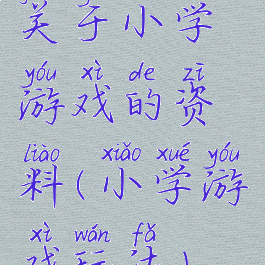 关于小学
yóu xì de zī
游戏的资
liào xiǎo xué yóu
料(小学游
xì wán fǎ
戏玩法)